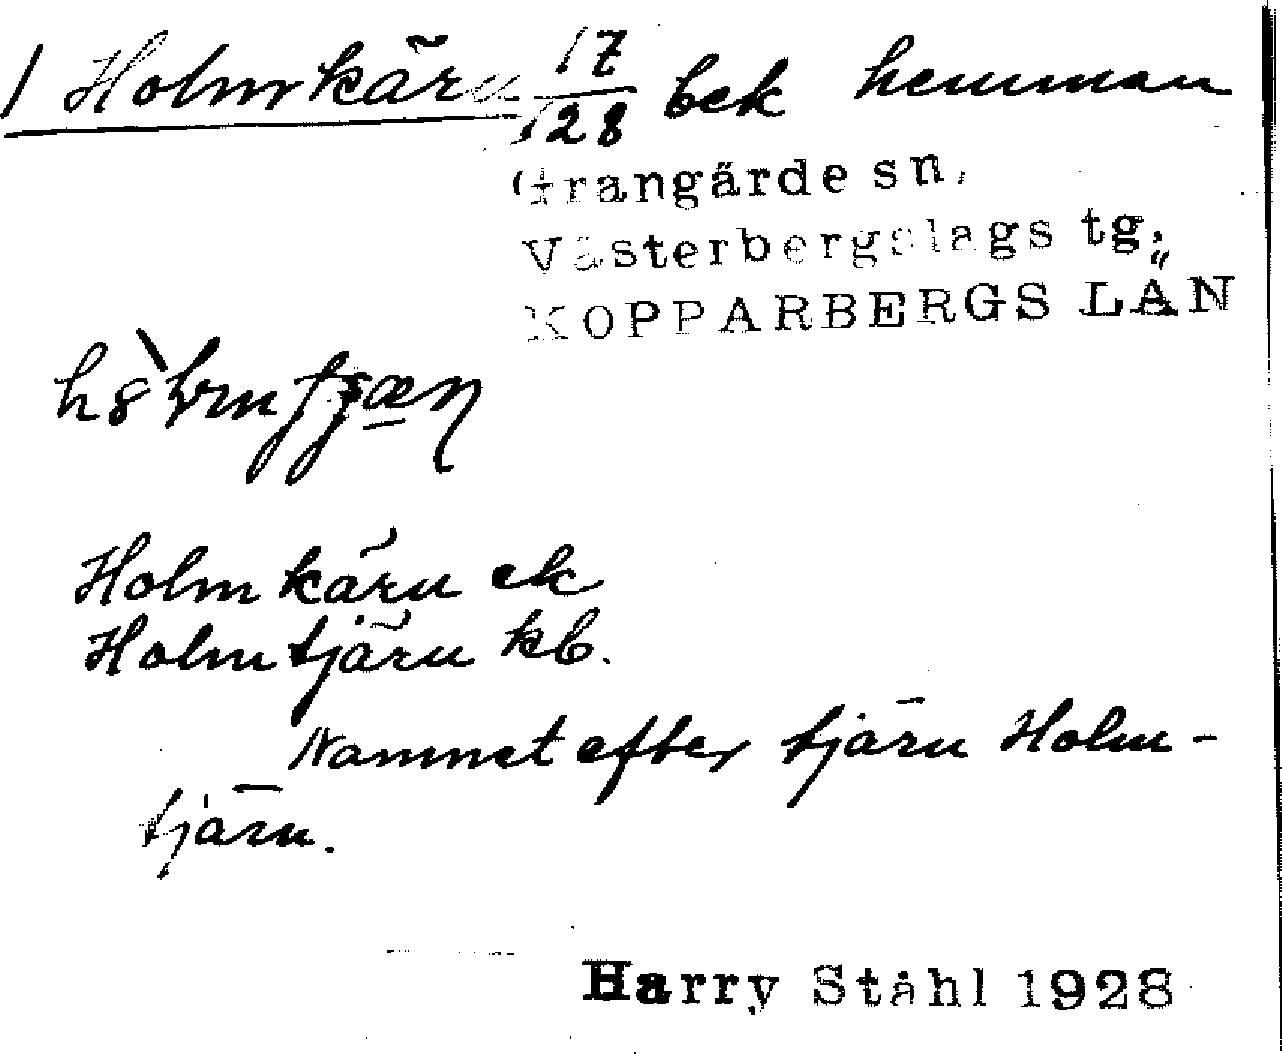 1 Holmkärn 17/128 bek hemman
Grangärde sn,
Västerbergslags tg,
KOPPARBERGS LÄN
Holmkärn ek
Holmtjärn kb.
Namnet efter tjärn Holm-
tjärn.
Harry Ståhl 1928